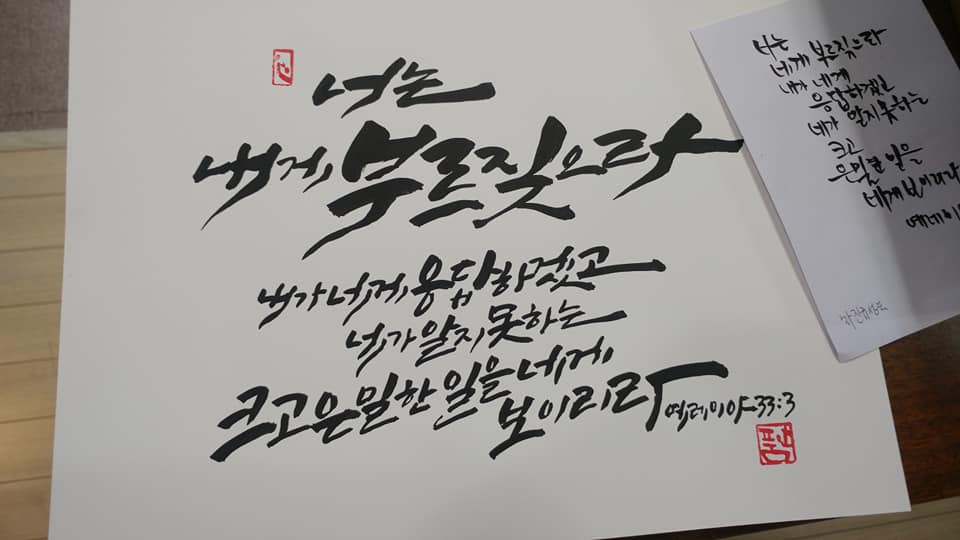 너는
내게 부르짖으라
내가 네게 응답하겠고
네가 알지 못하는
크고 은밀한 일을 네게
보이리라 예레미야 33:3
너는
네게 부르짖으라
내가 네게
응답하겠고
네가 알지못하는
크고
은밀한 일을
네게 보이리라
예레미